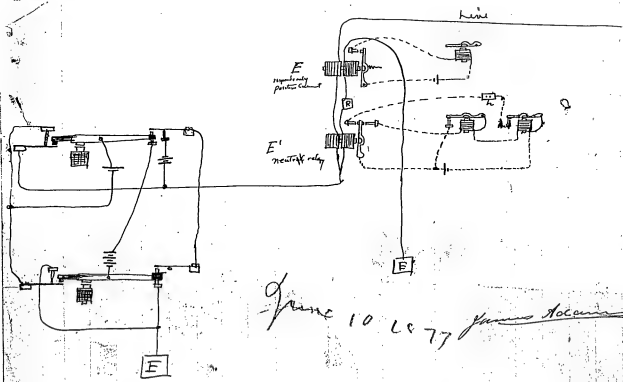 Line
E
responds only
positive current
R
h
E'
neutral relay
E
June 10 1877 James Adams
E